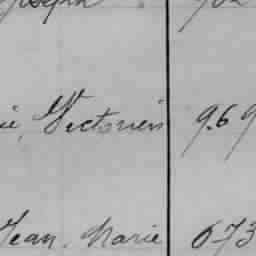 Joseph
ie, Victorien 969
Jean Marie 673